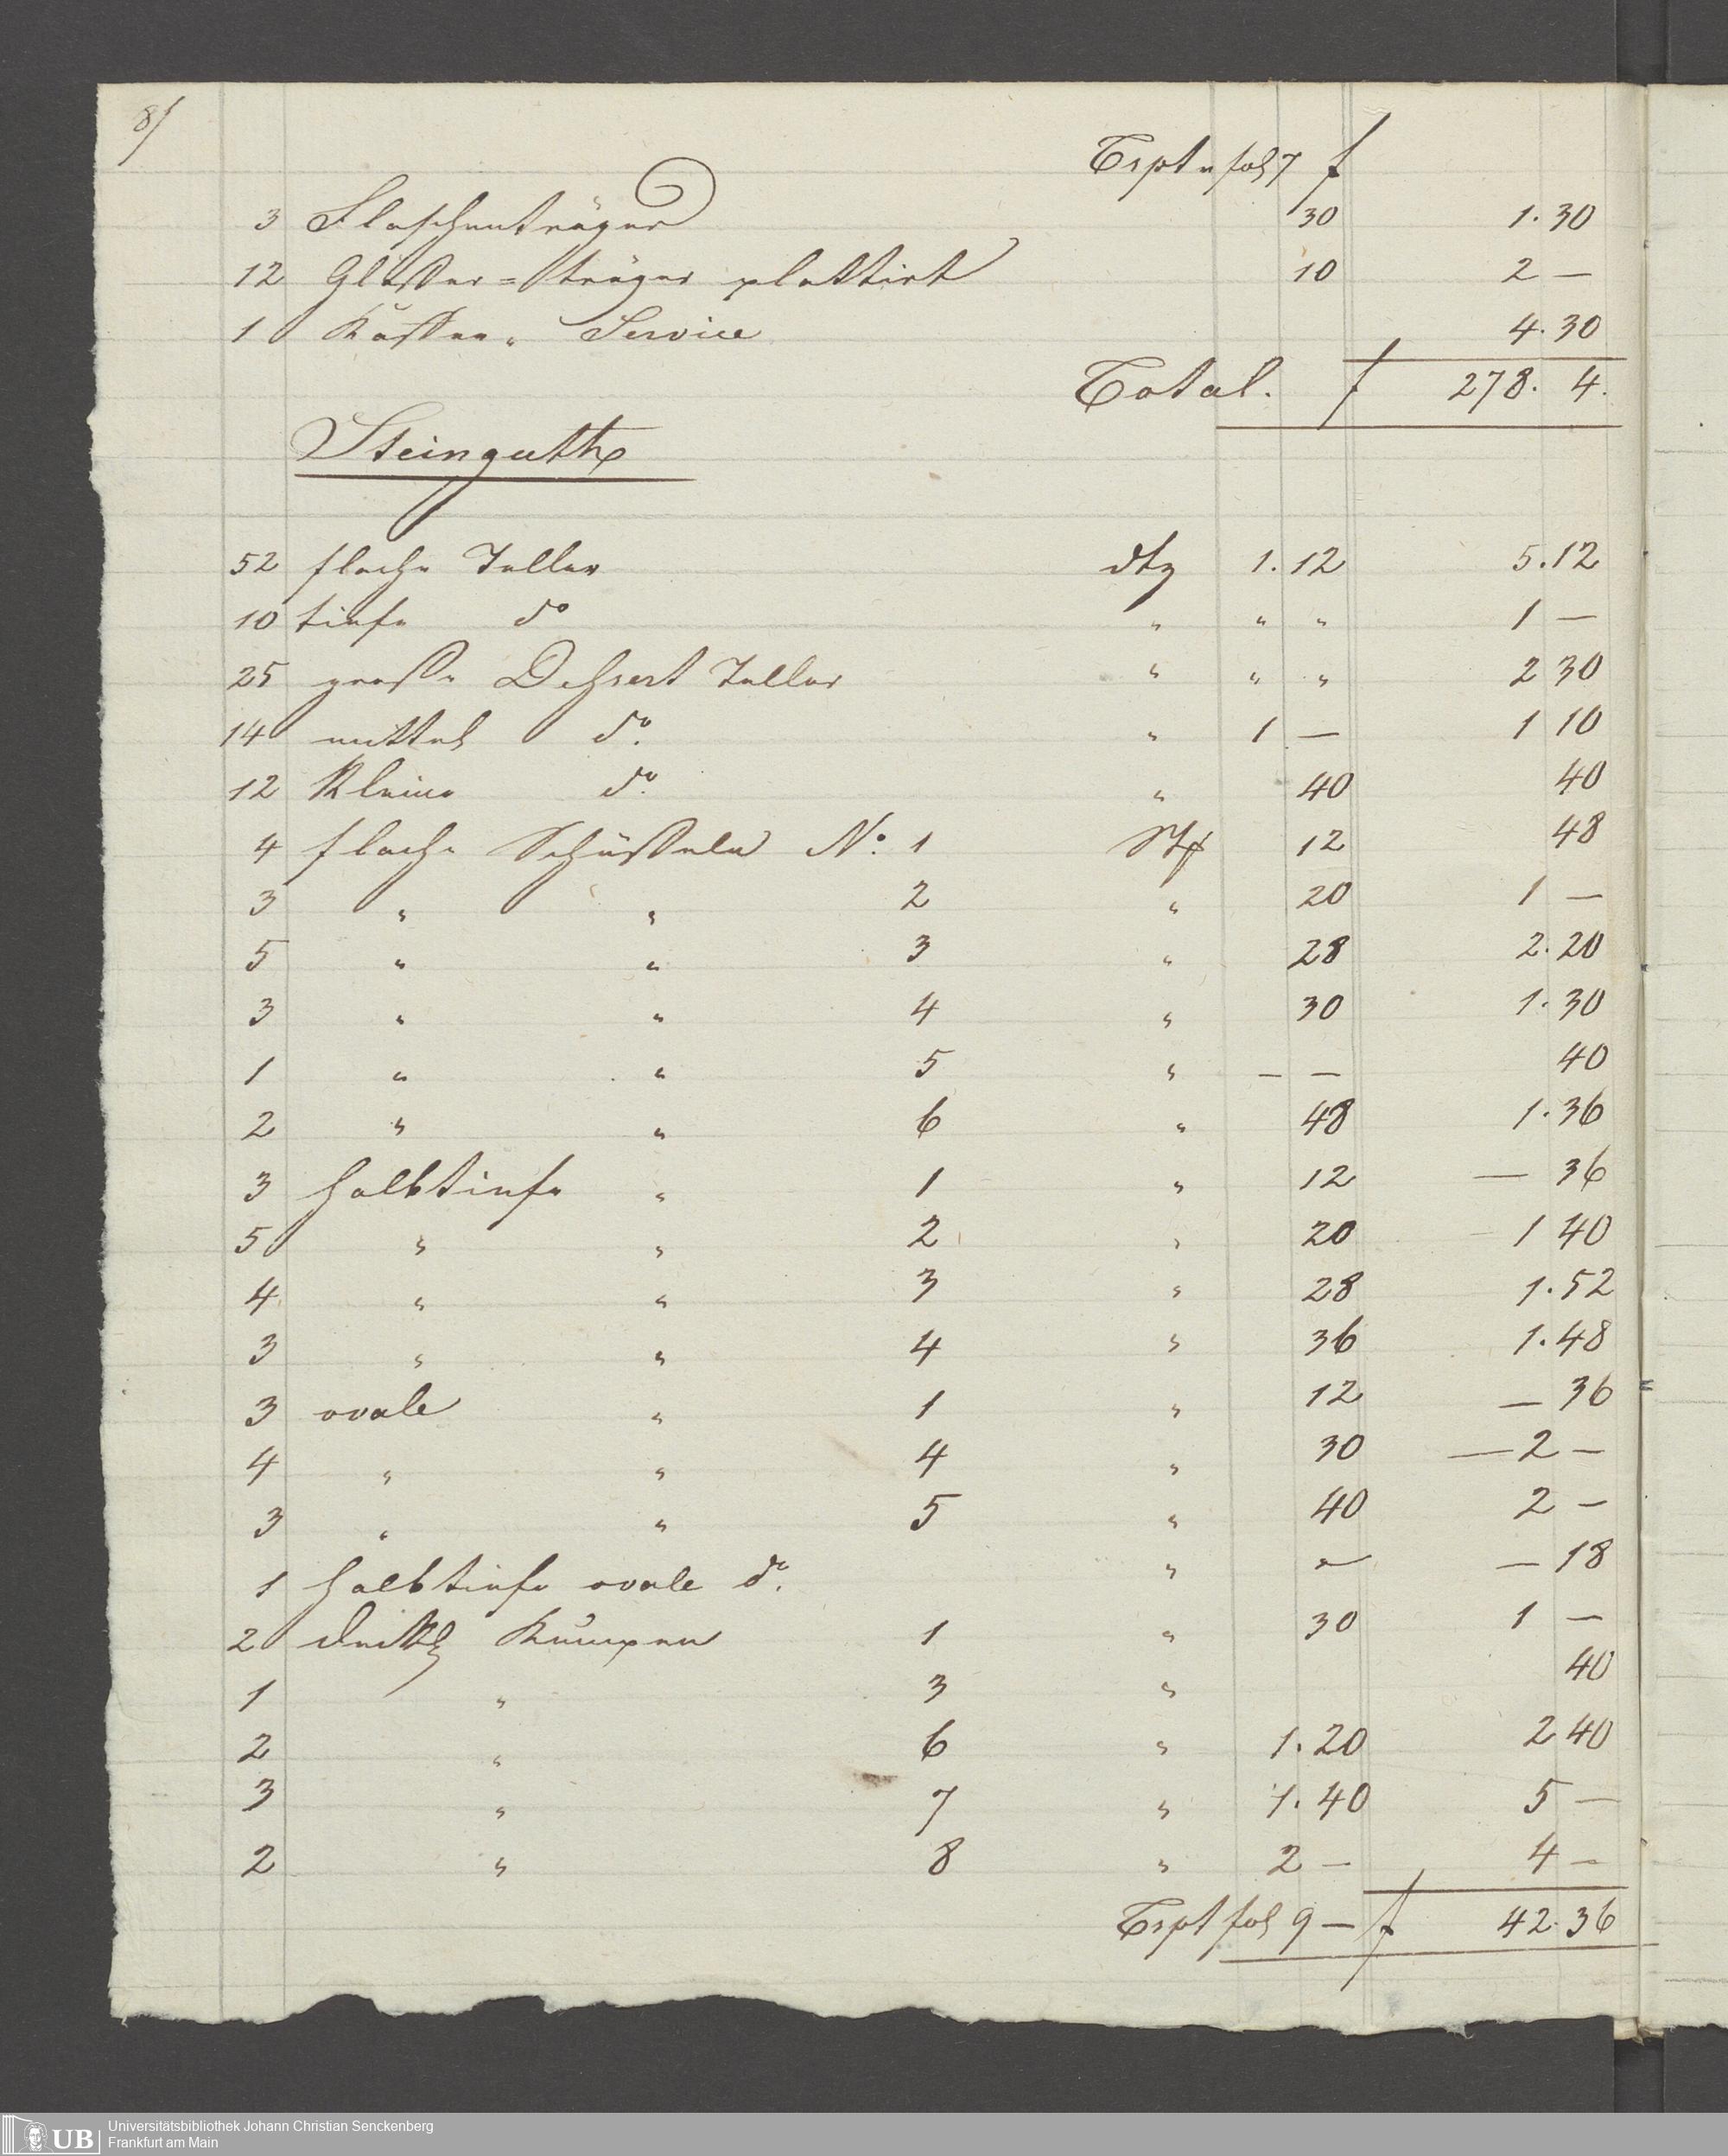 8/
Trspt v fol 7 f
3 Flaschenträger 30 1.30
12 Gläser=träger plattirt 10 2 —
1 Service 4.30
Total. f 278. 4.
Steinguth
52 flache Teller dtz 1.12 5.12
10 tiefe do " " " 1 —
25 große Dessert Teller " " " 2 30
14 mittel do. " 1 — 1 10
12 Kleine do. " 40 40
4 flache Schüsseln No. 1 Stk 12 48
3 " " 2 " 20 1 —
5 " " 3 " 28 2.20
3 " " 4 " 30 1.30
1 " " 5 " — — 40
2 " " 6 " 48 1.36
3 halbtiefe " 1 " 12 — 36
5 " " 2 " 20 1 40
4 " " 3 " 28 1.52
3 " " 4 " 36 1.48
3 ovale " 1 " 12 — 36
4 " " 4 " 30 — 2 —
3 " " 5 " 40 2 —
1 halbtiefe ovale do. " — — 18
2 Kumpen 1 " 30 1 —
1 " 3 " 40
2 " 6 " 1.20 2 40
3 " 7 " 1.40 5 —
2 " 8 " 2 — 4 —
Trspt fol 9 — f 42.36
UB Universitätsbibliothek Johann Christian Senckenberg
Frankfurt am Main